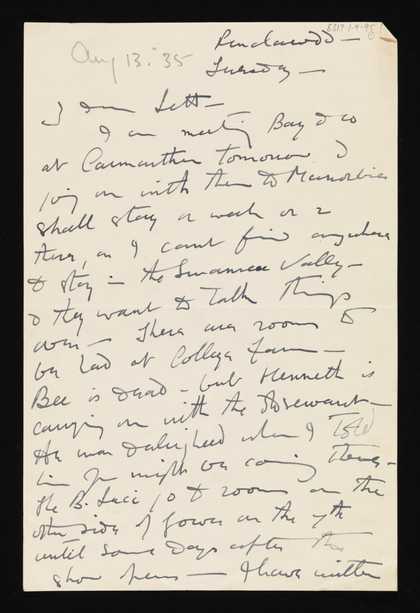 Aug 13. '35
Penclawdd -
Tuesday -
Dear Lett -
I am meeting Bay & co
at Carmarthen tomorrow &
going on with them to Manorbier
shall stay a week or 2
there, as I can't find anywhere
to stay in the Swansea Valley -
& they want to talk things
over - There are rooms to
be had at College Farm -
Bee is dead - but Kenneth is
carrying on with the
He was delighted when I told
him you might be coming there -
The B. go to rooms on the
other side of Gower on the 7th
until some days after the
show opens - I have written